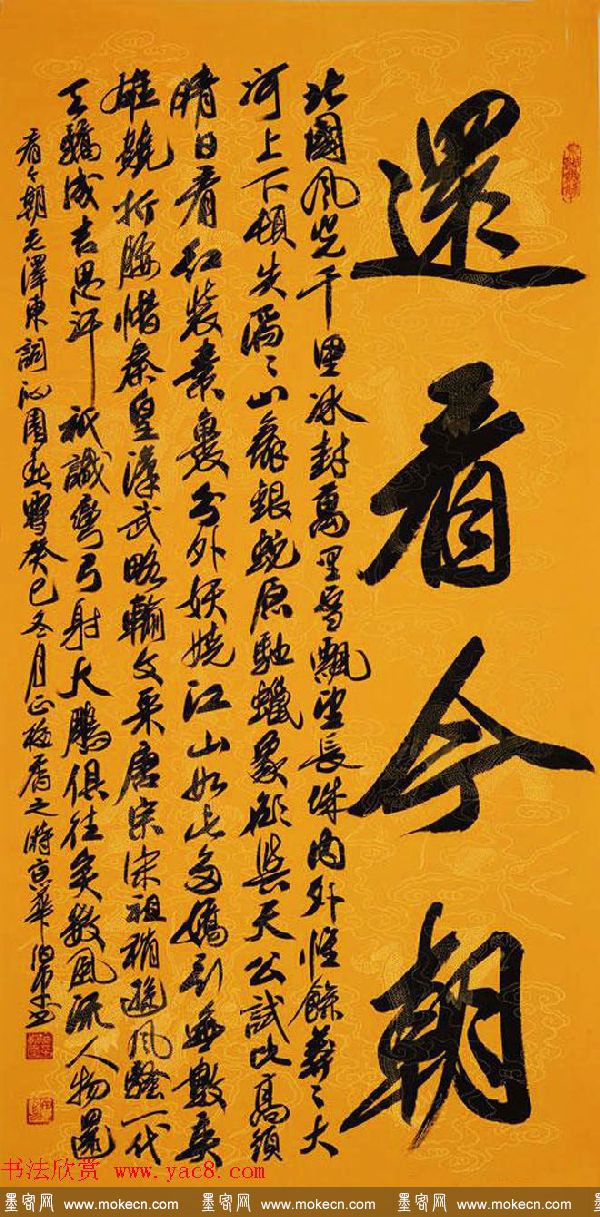 還看今朝
北國風光千里冰封萬里雪飄望長城內外惟餘莽々大
河上下頓失滔々山舞銀蛇原馳蠟象欲與天公試比高須
晴日看紅裝素裹分外妖嬈江山如此多嬌引無數英
雄競折腰惜秦皇漢武略輸文采唐宗宋祖稍遜風騷一代
天驕成吉思汗祇識彎弓射大鵰俱往矣數風流人物還
看今朝毛澤東詞沁園春雪癸巳冬月正梅香之時京華伯
书法欣赏 www.yac8.com
墨客网 www.mokecn.com 墨客网 www.mokecn.com 墨客网 www.mokecn.com